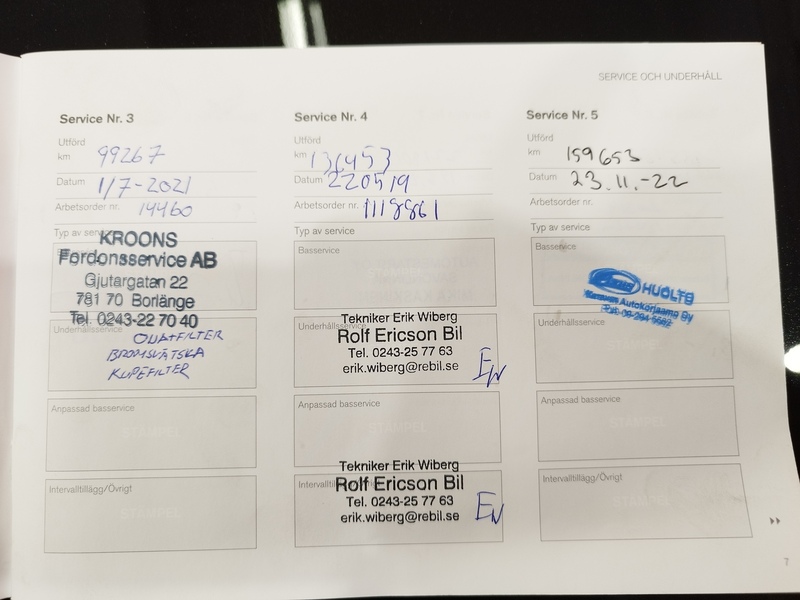 SERVICE OCH UNDERHÅLL
Service Nr. 3
Utförd
km 99267
Datum 1/7-2021
Arbetsorder nr. 14460
Typ av service
KROONS
Fordonsservice AB
Gjutargatan 22
781 70 Borlänge
Tel. 0243-22 70 40
Underhållsservice
OLJA+FILTER
BROMSVÄTSKA
KUPEFILTER
Anpassad basservice
STÄMPEL
Intervalltillägg/Övrigt
STÄMPEL
Service Nr. 4
Utförd
km 131453
Datum 220519
Arbetsorder nr. 1118861
Typ av service
Basservice
Underhållsservice
Tekniker Erik Wiberg
Rolf Ericson Bil
Tel. 0243-25 77 63
erik.wiberg@rebil.se
EW
Anpassad basservice
STÄMPEL
Intervalltillägg/Övrigt
Tekniker Erik Wiberg
Rolf Ericson Bil
Tel. 0243-25 77 63
erik.wiberg@rebil.se
EW
Service Nr. 5
Utförd
km 159653
Datum 23.11.-22
Arbetsorder nr.
Typ av service
Basservice
HUOLTO
Autokorjaamo Oy
Underhållsservice
STÄMPEL
Anpassad basservice
STÄMPEL
Intervalltillägg/Övrigt
STÄMPEL
7